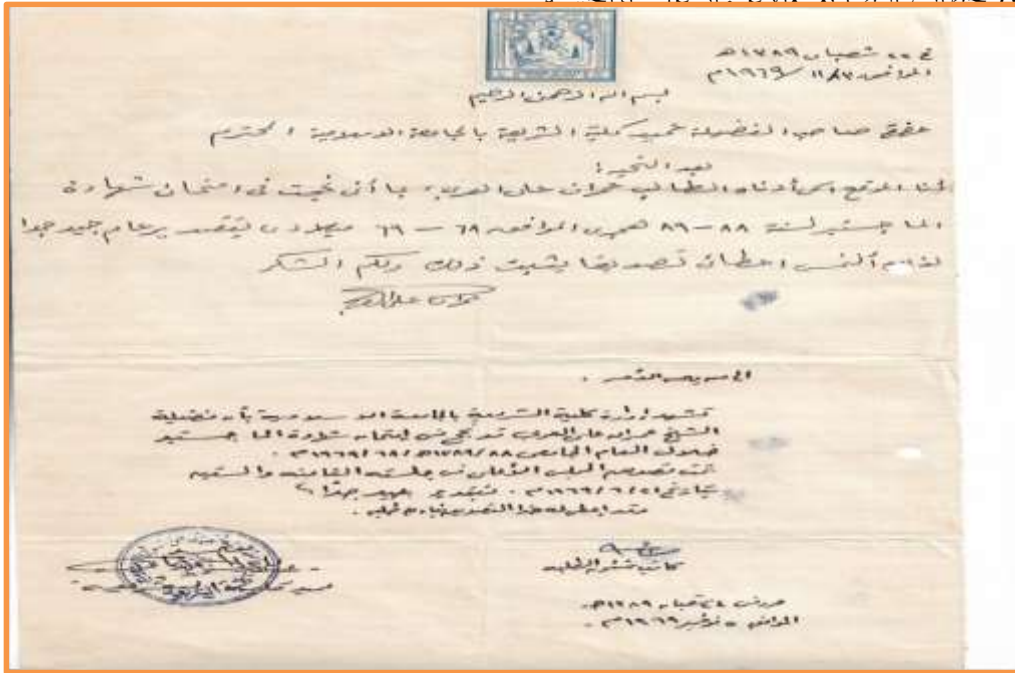 في ٢٢ شعبان ١٣٨٩ هـ
الموافق ١١/٣/ ١٩٦٩م
بسم الله الرحمن الرحيم
حضرة صاحب الفضيلة عميد كلية الشريعة بالجامعة الاسلامية المحترم
بعد التحية؛
أنا الموقع اسمي أدناه الطالب عمران علي العربي بما أني نجحت في امتحان شهادة
الماجستير لسنة ٨٨ – ٨٩ هجري الموافق ٦٨ – ٦٩ ميلادي بتقدير عام جيد جدا
لذا ألتمس اعطائي تصديقا يثبت ذلك ولكم الشكر
الى من يهمه الأمر .
تشهد إدارة كلية الشريعة بالجامعة بأن فضيلة
الشيخ عمران علي العربي قد نجح في امتحان شهادة الماجستير
خلال العام الجامعي ٨٨/١٣٨٩هـ ٦٨/١٩٦٩م .
المجلس الأعلى في جلسته الثامنة والستين
بتاريخ ١٩٦٩/٦/٢١م . بتقدير جيد جدًا
وقد اعطي له هذا التصديق بناء على طلبه .
كاتب شئون الطلبة
١٣٨٩هـ
الموافق ٥ نوفمبر ١٩٦٩م .